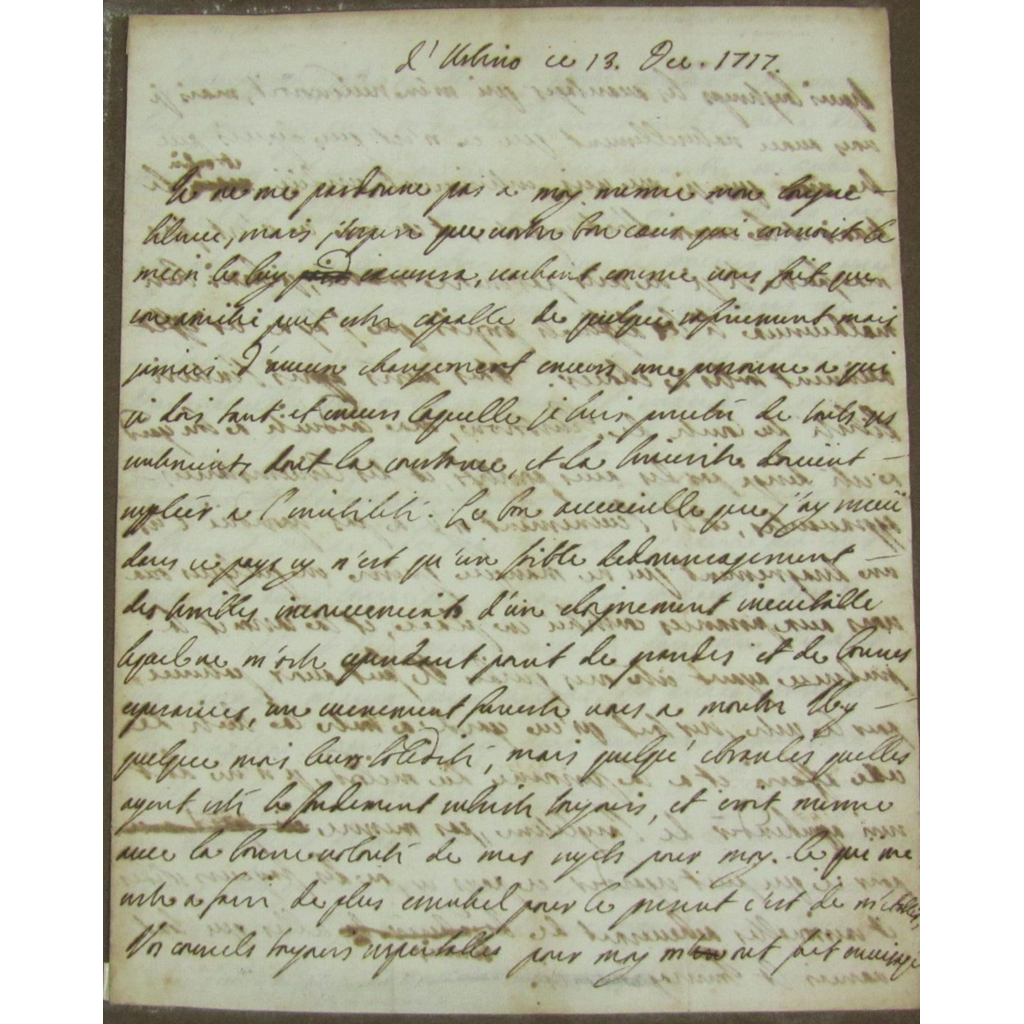 d'Urbino ce 13. Dec. 1717.
Je ne me pardonne pas a moy mesme mon longue
silence, mais j'espere que vostre bon coeur qui connoist le
mien le luy excusera, sachant comme vous fait que
son amitié peut estre capable de quelque mais
jamais d'aucun changement envers une personne a qui
je dois tant et envers laquelle je suis penetré de touts ces
sentiments dont la constance, et la sincerité doivent
supléer a l'inutilité. Le bon accueille que j'ay
dans ce pays cy n'est qu'un foible dedommagement
des terribles inconvenients d'un eloignement inevitable
lequel ne m'oste cependant point de grandes et de bonnes
esperances, un evenement funeste vous a montré il y a
quelque mois leur solidité, mais quelqe ebranlés quelles
ayent esté le fondement subsiste toujours, et croit mesme
avec la bonne volonté de mes sujets pour moy. Ce qui me
reste a faire de plus essentiel pour le present c'est de
Vos conseils toujours respectables pour moy m'en ont fait